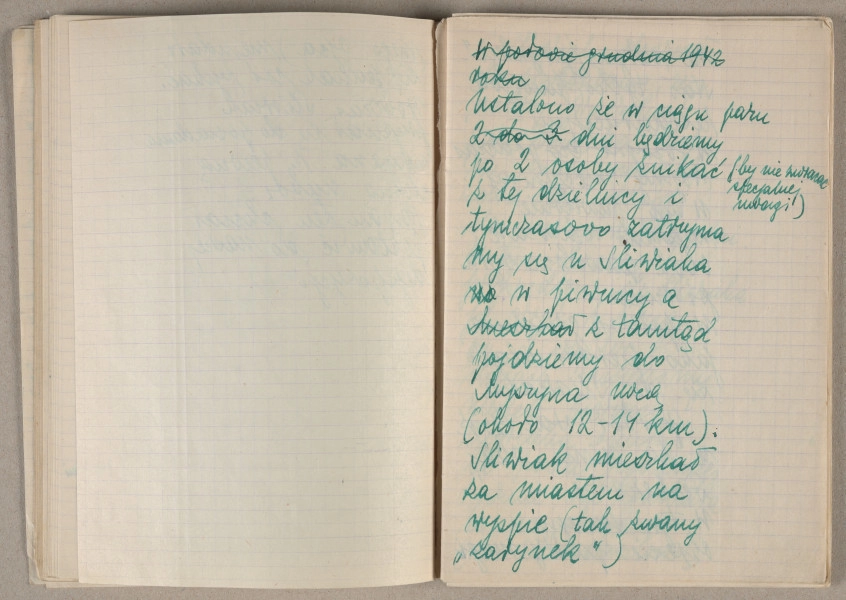 W połowie grudnia 1942
roku
Ustalono że w ciągu paru
2 do 3 dni będziemy
po 2 osoby znikać (by nie zwracać
specjalnej
uwagi!)
z tej dzielnicy i
tymczasovo zatrzyma
my się u Śliwiaka
w piwnicy a
mieszkał z tamtąd
pojdziemy do
nocą
(około 12-14 km).
Śliwiak mieszkał
za miastem na
wyspie (tak zwany
„zarynek")